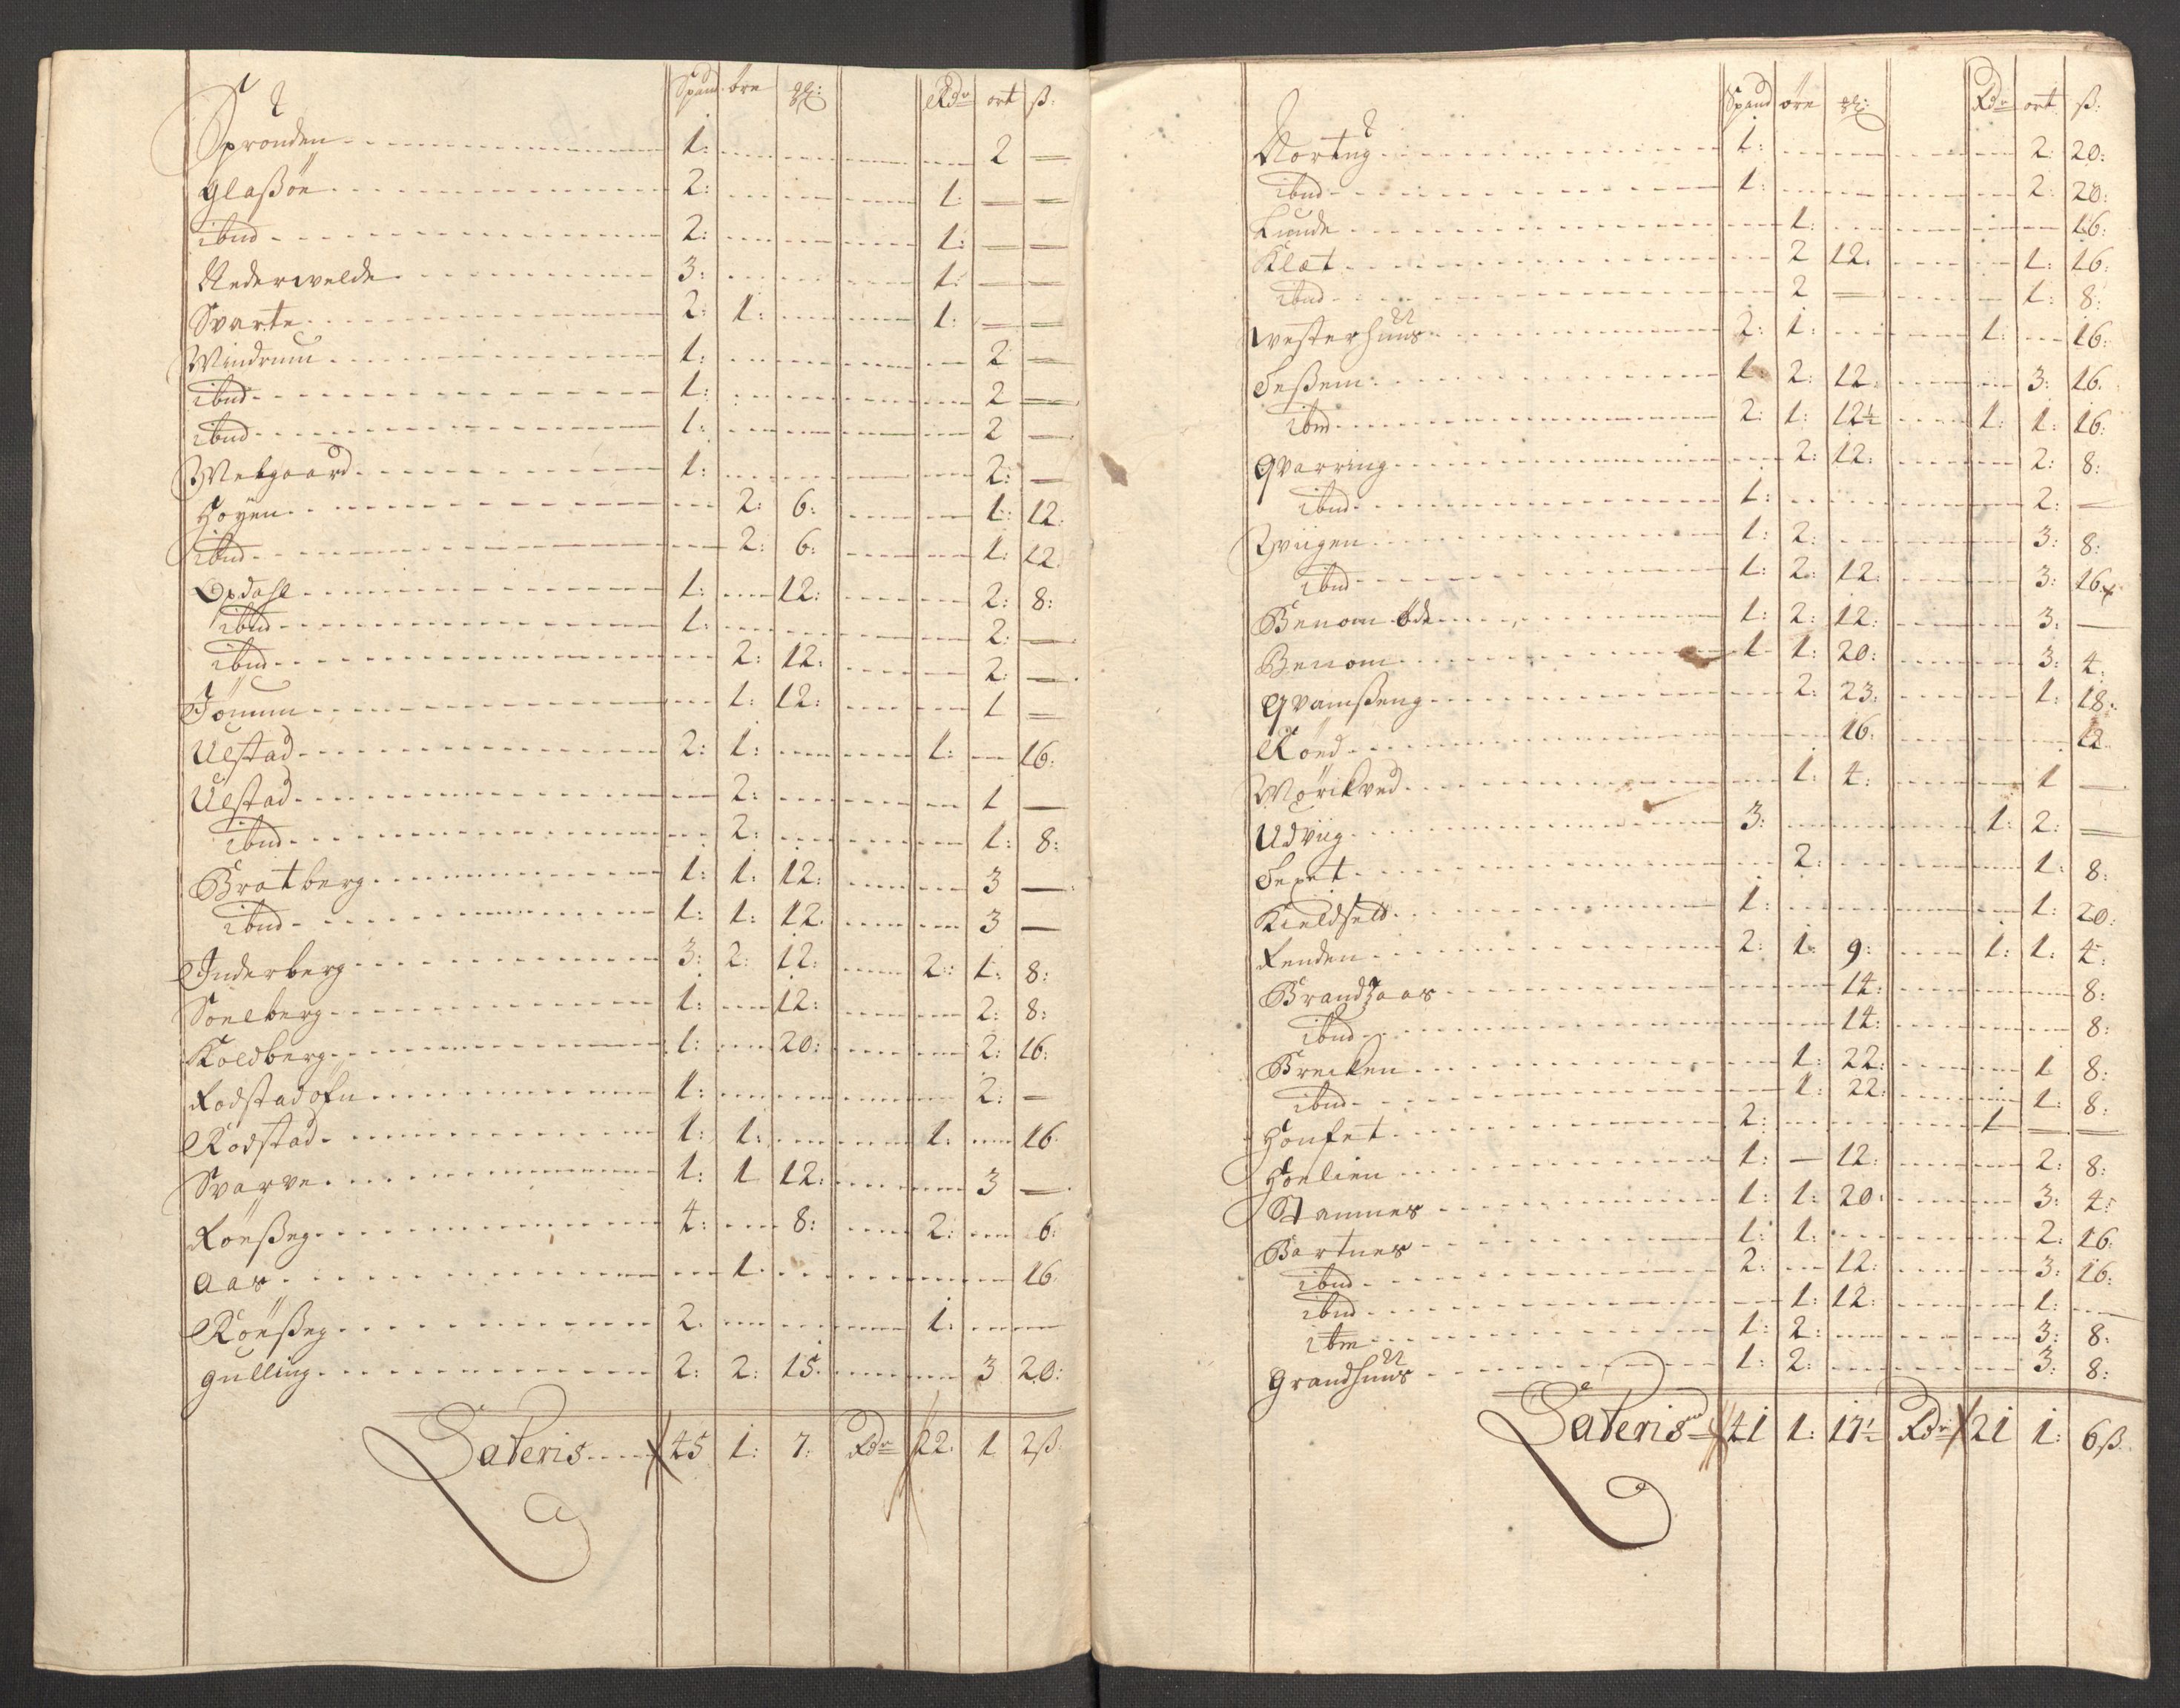 Spand öre gl: Rdr ort ß:
Spronden 1: 2 —
Glaßöe 2: 1: — —
ibnd 2: 1: — —
Nederwelde 3: 1: — —
Svarte 2: 1: 1: — —
Windrum 1: 2 —
ibnd 1: 2 —
ibnd 1: 2 —
Melgaard 1: 2: —
Høyen 2: 6: 1: 12.
ibnd 2: 6: 1: 12.
Opdahl 1: 12: 2: 8:
ibnd 1: 2: —
ibnd 2: 12: 2: —
Jömum 1: 12: 1 —
Ulstad 2: 1: 1: — 16:
Ulstad 2: 1 —
ibnd 2: 1: 8:
Bratberg 1: 1: 12: 3 —
ibnd 1: 1: 12. 3 —
Inderberg 3: 2: 12: 2: 1: 8:
Söelberg 1: 12: 2: 8:
Koldberg 1: 20: 2: 16:
Rodstadofn 1: 2: —
Rodstad 1: 1: 1: 16
Svarve 1: 1 12: 3 —
Röeßeg 4: 8: 2: 6:
Aas 1. 16
Röeßeg 2. 1:
Gulling 2: 2: 15. 3 20:
Lateris 45 1: 7: Rdr 22. 1 2ß
Spand öre gl: Rdr ort ß:
Nortug 1: 2: 20:
ibnd 1: 2: 20:
Lunde 1: 16:
Klæt 2 12. 1: 16:
ibnd 2 — 1: 8:
Westerhuus 2: 1: 1: 16:
Seßem 1: 2: 12: 3: 16.
ibm 2: 1: 12½ 1: 1: 16:
Qvarring 2: 12: 2: 8:
ibnd 1: 2: —
Wiigen 1: 2: 3: 8:
ibnd 1: 2: 12: 3: 16.
Benom öde 1: 2: 12: 3: —
Benom 1 1: 20: 3: 4.
Qvamßeng 2: 23: 1: 18:
Röed 16: 12.
Mörikved 1: 4: 1 —
Udviig 3: 1: 2: —
Sepet 2: 1: 8:
Kieldseld 1: 1: 20:
Renden 2: 1: 9: 1: 1. 4:
Brandzaas 14: 8:
ibnd 14: 8:
Brecken 1: 22: 1 8:
ibnd 1: 22: 1: 8:
Honset 2: 1 — —
Hoelien 1: — 12: 2: 8:
Stamnes 1: 1: 20: 3: 4:
Bartnes 1: 1: 2: 16:
ibnd 2: 12: 3: 16:
ibnd 1: 12: 1:
ibm 1: 2: 3: 8:
Grandhuus 1: 2: 3: 8:
Lateris 41 1: 17½ Rdr 21 1: 6ß.